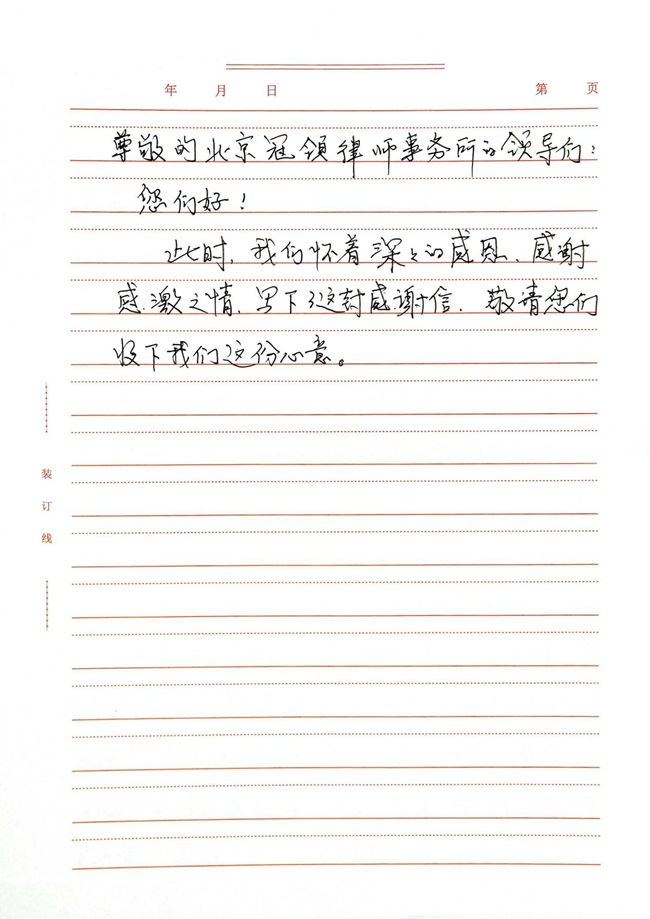 年 月 日 第 页
尊敬的北京冠领律师事务所的领导们：
您们好！
此时，我们怀着深々的感恩、感谢
感激之情，写下这封感谢信，敬请您们
收下我们这份心意。
装
订
线